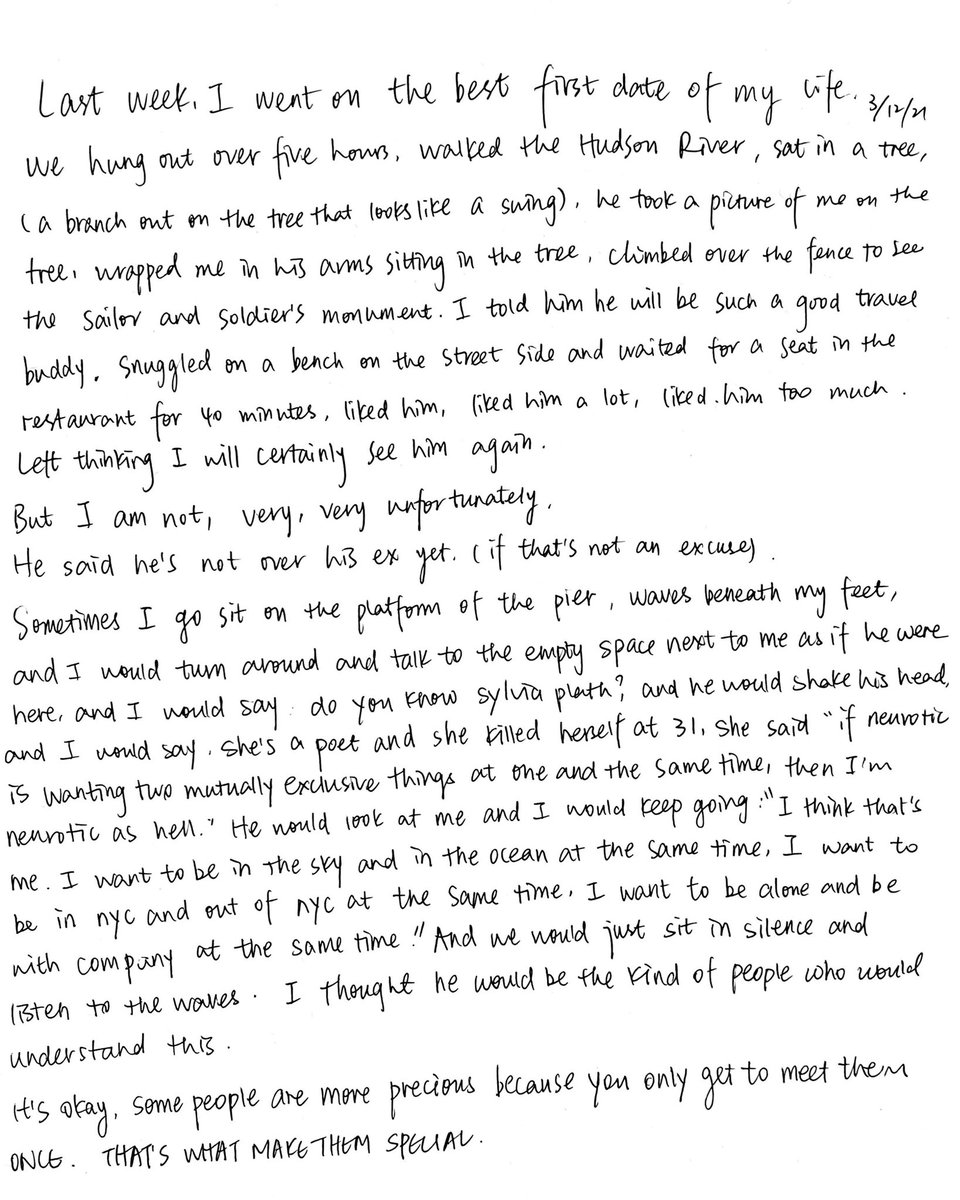 Last week, I went on the best first date of my life. 3/12/21
we hung out over five hours, walked the Hudson River, sat in a tree,
(a branch out on the tree that looks like a swing), he took a picture of me on the
tree, wrapped me in his arms sitting in the tree, climbed over the fence to see
the sailor and soldier's monument. I told him he will be such a good travel
buddy. Snuggled on a bench on the street side and waited for a seat in the
restaurant for 40 minutes, liked him, liked him a lot, liked him too much.
Left thinking I will certainly see him again.
But I am not, very, very unfortunately.
He said he's not over his ex yet. (if that's not an excuse).
Sometimes I go sit on the platform of the pier, waves beneath my feet,
and I would turn around and talk to the empty space next to me as if he were
here, and I would say: do you know sylvia plath? and he would shake his head,
and I would say, she's a poet and she killed herself at 31, she said "if neurotic
is wanting two mutually exclusive things at one and the same time, then I'm
neurotic as hell." He would look at me and I would keep going: "I think that's
me. I want to be in the sky and in the ocean at the same time, I want to
be in nyc and out of nyc at the same time, I want to be alone and be
with company at the same time." And we would just sit in silence and
listen to the waves. I thought he would be the kind of people who would
understand this.
It's okay, some people are more precious because you only get to meet them
ONCE. THAT'S WHAT MAKE THEM SPECIAL.